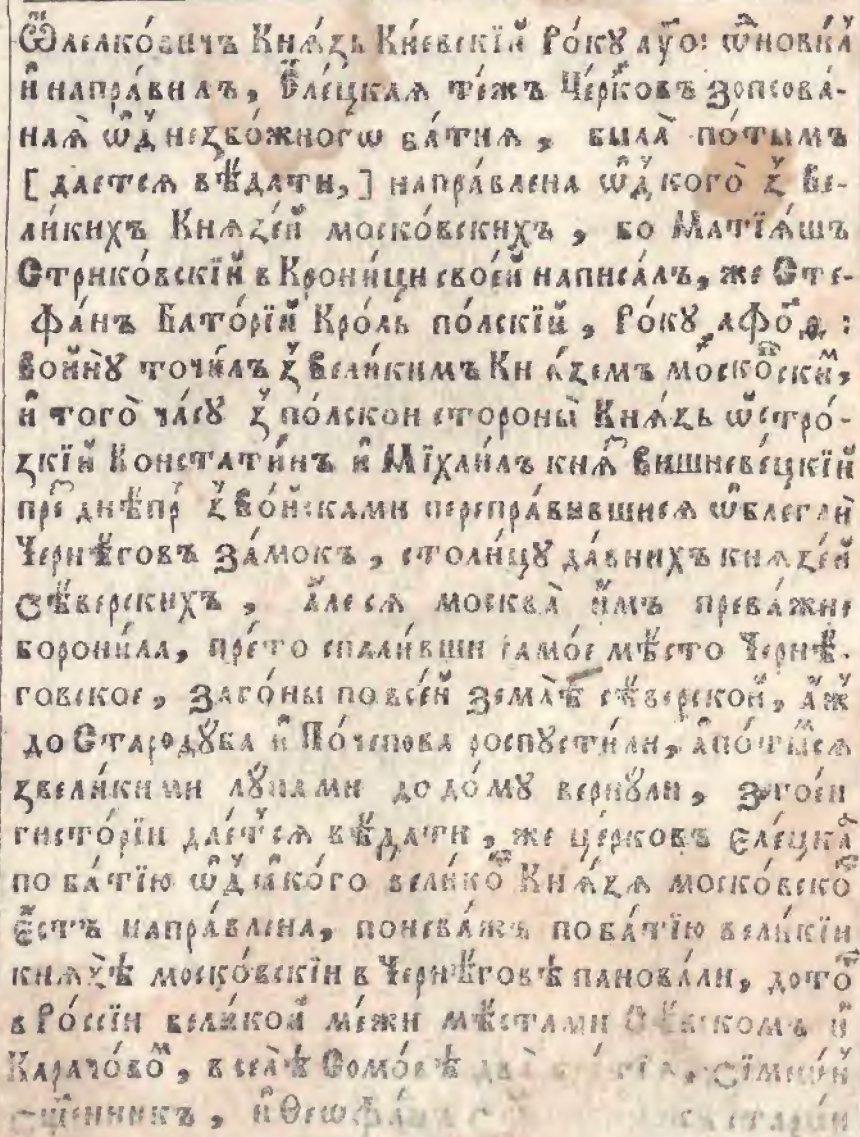 Ѻ҆лелко́вичъ Кнѧ́зь Кі́евскїй Ро́кꙋ а҂у҃о: ѿнови́лъ
и҆ напра́вилъ, Є҆ле́цкаѧ те́жъ Це́рковъ зопсова́-
наѧ̀ ѿ незбо́жногѡ ба́тиѧ, была̀ по́тымъ
[дае́тсѧ вѣ́дати,] напра́влена ѿ кого̀ з̾ Ве-
ли́кихъ Кнѧзе́й моско́вскихъ, бо Матїѧ́шъ
Стрико́вскїй в Крони́ци свое́й написа́лъ, же Сте-
фа́нъ Бато́рїй Кро́ль по́лскїй, Ро́кꙋ ҂афо҃ѳ:
войнꙋ̀ точи́лъ з̾ вели́кимъ Кнѧ́земъ моско́вски,
и҆ того̀ ча́сꙋ з̾ по́лскои стороны̀ Кнѧ́зь ѡ҆стро́-
зкїй Констати́нъ и҆ Мїхаи́лъ кнѧ Вишневе́цкїй
пре днѣ́пръ з̾ во́йсками перепра́вывшиесѧ ѡ҆блеглѝ
Черънѣ́говъ За́мокъ, столи́цꙋ да́внихъ кнѧзе́й
Сѣ́верскихъ, а҆лесѧ москва̀ и҆мъ прева́жне
борони́ла, пре́то спали́вши само́е мѣ́сто Чернѣ́-
говское, Заго́ны по все́й землѣ̀ сѣ́верской, а҆ж
до Стародꙋ́ба и҆ По́чепова роспꙋсти́ли, а҆ по́тымсѧ
з вели́кими лꙋ́пами до до́мꙋ вернꙋ́ли, з тое́и
гисто́рїи дае́тсѧ вѣ́дати, же це́рковъ Є҆ле́цкаѧ
по ба́тїю ѿ ꙗ҆ко́го вели́ко Кнѧ́зѧ моско́вско
Є҆стъ напра́влена, понева́жъ по ба́тїю вели́кїи
кнѧзѣ̀ моско́вскїи в Чернѣ́говѣ панова́ли, до то
в Ро́ссїи вели́кой ме́жи мѣ́стами Сѣ́вскомъ и҆
Карачово, в селѣ̀ Сомо́вѣ два̀
сщ҃е́нникъ, и҆ Ѳеѡфа́нъ